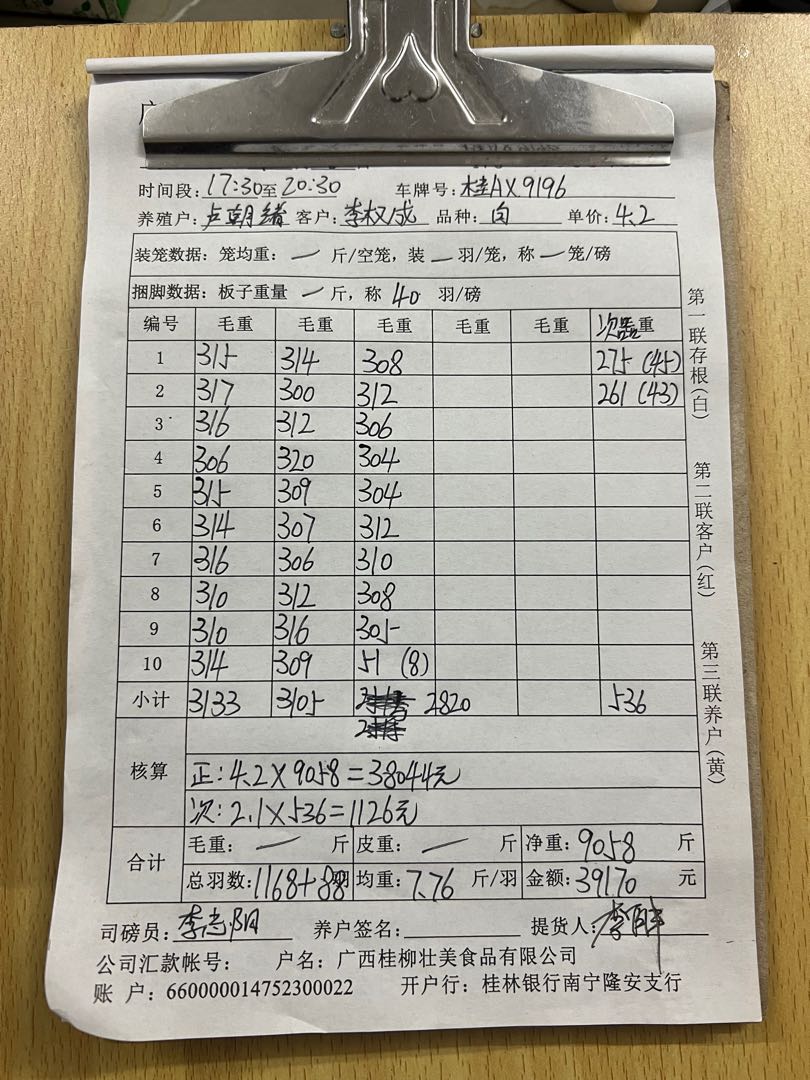 时间段:17:30至20:30 车牌号:桂AX9196
养殖户:卢朝绪 客户:李权成 品种:白 单价:4.2
装笼数据:笼均重:— 斤/空笼,装 — 羽/笼,称 — 笼/磅
捆脚数据:板子重量 — 斤,称 40 羽/磅
编号 毛重 毛重 毛重 毛重 毛重 次 重
1 315 314 308 275 (45)
2 317 300 312 261 (43)
3 316 312 306
4 306 320 304
5 315 309 304
6 314 307 312
7 316 306 310
8 310 312 308
9 310 316 305
10 314 309 51 (8)
小计 3133 3105 2820 536
核算
正:4.2×9058=38044元
次:2.1×536=1126元
合计
毛重:— 斤 皮重:— 斤 净重:9058 斤
总羽数:1168+88羽 均重:7.76 斤/羽 金额:39170 元
司磅员:李志阳 养户签名: 提货人:李
公司汇款帐号: 户名:广西桂柳壮美食品有限公司
账 户:660000014752300022 开户行:桂林银行南宁隆安支行
第一联存根(白)
第二联客户(红)
第三联养户(黄)